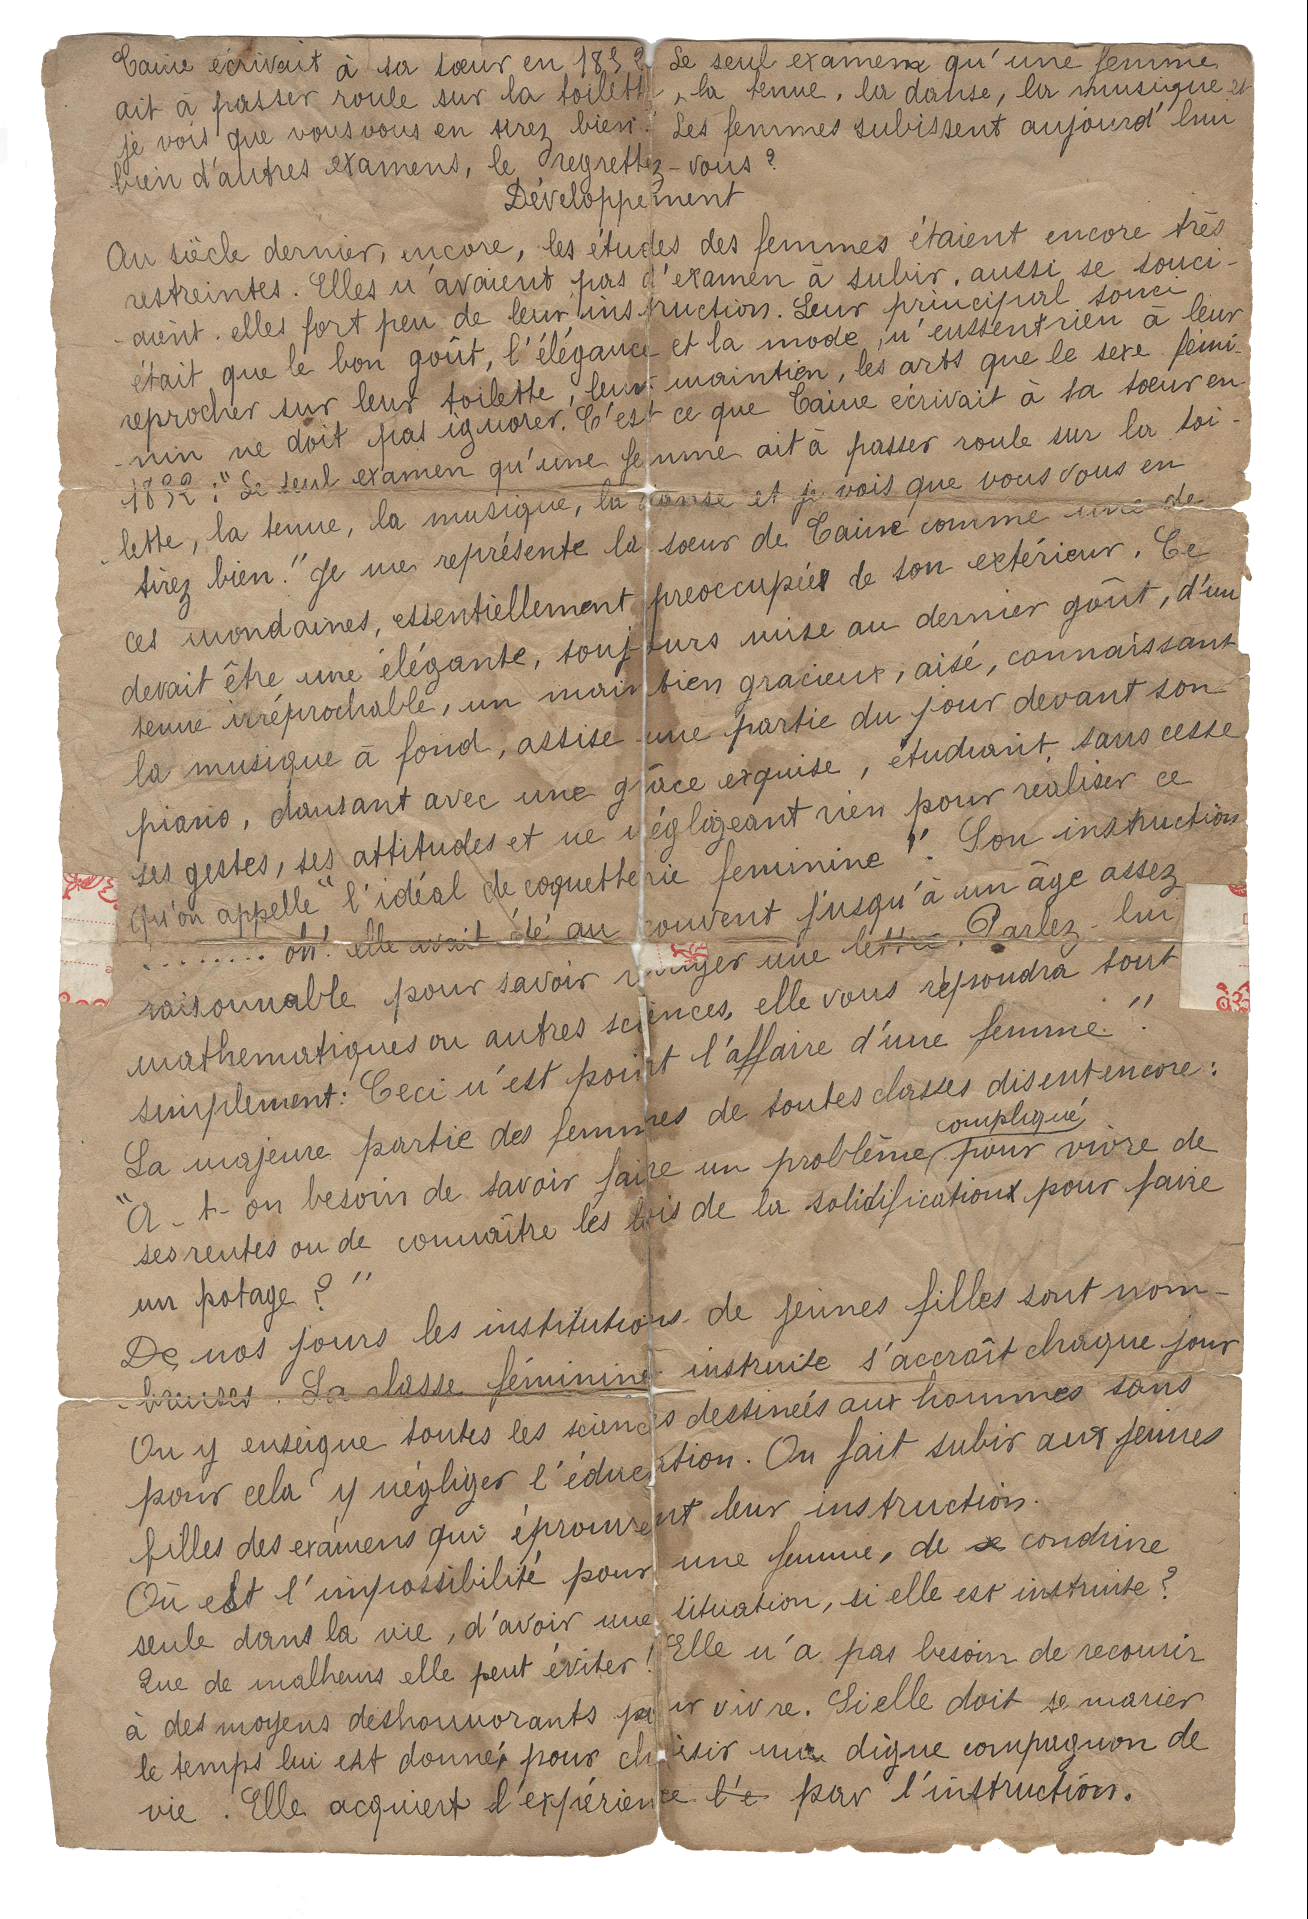 Taine écrivait à sa sœur en 1832 Le seul examen qu'une femme
ait à passer roule sur la toilette, la tenue, la danse, la musique et
je vois que vous vous en tirez bien. Les femmes subissent aujourd'hui
bien d'autres examens, le regrettez-vous?
Développement
Au siècle dernier, encore, les études des femmes étaient encore très
restreintes. Elles n'avaient pas d'examen à subir, aussi se souci-
-aient-elles fort peu de leur instruction. Leur principal souci
était que le bon goût, l'élégance et la mode, n'eussent rien à leur
reprocher sur leur toilette, leur maintien, les arts que le sexe fémi-
-nin ne doit pas ignorer. C'est ce que Taine écrivait à sa sœur en
1832 : "Le seul examen qu'une femme ait à passer roule sur la toi-
-lette, la tenue, la musique, la danse et je vois que vous vous en
tirez bien." Je me représente la sœur de Taine comme une de
ces mondaines, essentiellement préoccupées de son extérieur. Ce
devait être une élégante, toujours mise au dernier goût, d'un
tenue irréprochable, un maintien gracieux, aisé, connaissant
la musique à fond, assise une partie du jour devant son
piano, dansant avec une grâce exquise, étudiant sans cesse
ses gestes, ses attitudes et ne négligeant rien pour réaliser ce
qu'on appelle "l'idéal de coquetterie feminine". Son instruction
......... oh! elle avait été au couvent jusqu'à un âge assez
raisonnable pour savoir rédiger une lettre. Parlez-lui
mathematiques ou autres sciences, elle vous répondra tout
simplement: Ceci n'est point l'affaire d'une femme".
La majeure partie des femmes de toutes classes disent encore:
compliqué
"A-t-on besoin de savoir faire un problème pour vivre de
ses rentes ou de connaître les lois de la solidification pour faire
un potage?"
De nos jours les institutions de jeunes filles sont nom-
-breuses. La classe féminine instruite s'accroît chaque jour
On y enseigne toutes les sciences destinées aux hommes sans
pour cela y négliger l'éducation. On fait subir aux jeunes
filles des examens qui éprouvent leur instruction.
Où est l'impossibilité pour une femme, de se conduire
seule dans la vie, d'avoir une situation, si elle est instruite?
Que de malheurs elle peut éviter! Elle n'a pas besoin de recourir
à des moyens deshonnorants pour vivre. Si elle doit se marier
le temps lui est donné pour choisir un digne compagnon de
vie. Elle acquiert l'expérience l'e par l'instruction.